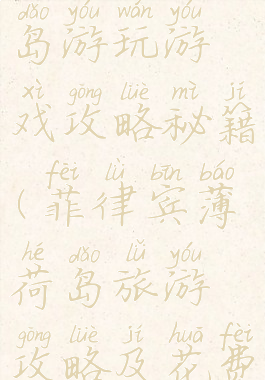 dǎo yóu wán yóu
岛游玩游
xì gōng lüè mì jí
戏攻略秘籍
fēi lǜ bīn báo
(菲律宾薄
hé dǎo lǚ yóu
荷岛旅游
gōng lüè jí huā fèi
攻略及花费